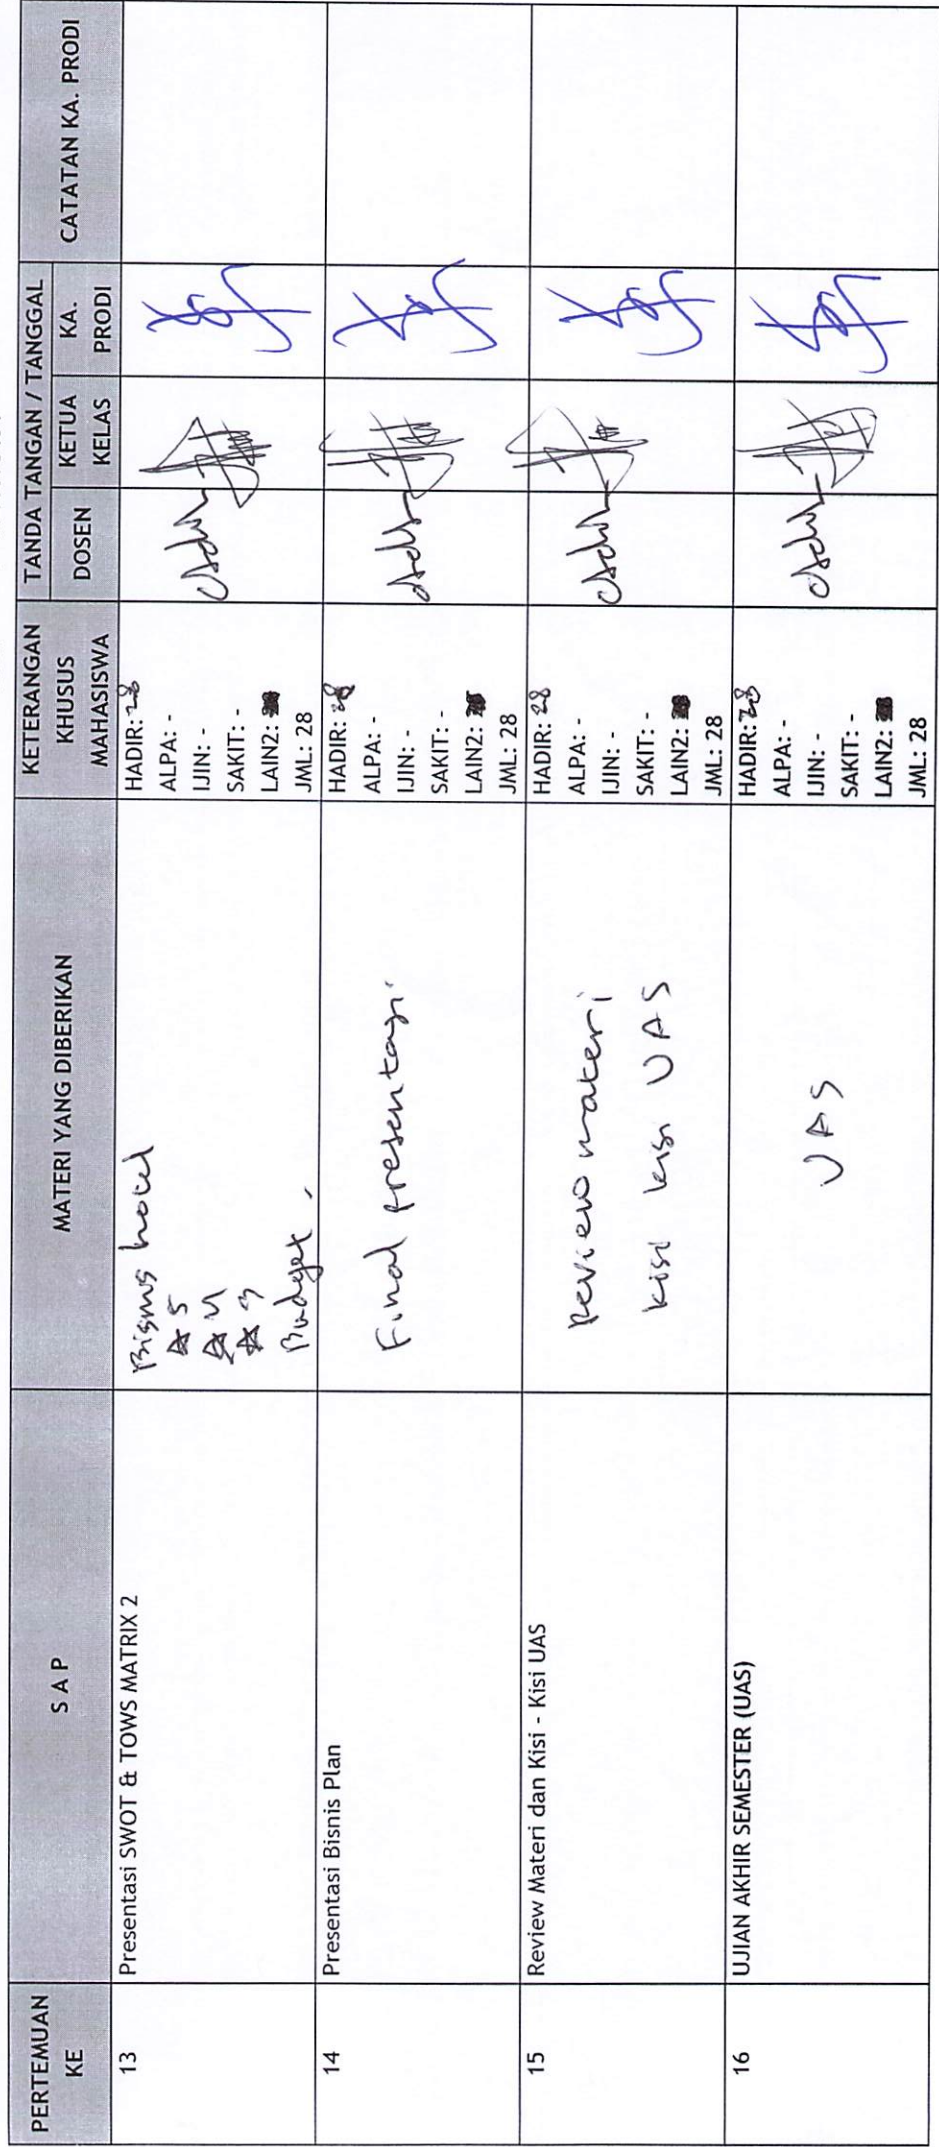 PERTEMUAN KE
S A P
MATERI YANG DIBERIKAN
KETERANGAN KHUSUS MAHASISWA
TANDA TANGAN / TANGGAL
DOSEN
KETUA KELAS
KA. PRODI
CATATAN KA. PRODI
13
Presentasi SWOT & TOWS MATRIX 2
Bisnis hotel
☆ 5
☆ 4
☆ 3
Budget.
HADIR: 28
ALPA: -
IJIN: -
SAKIT: -
LAIN2:
JML: 28
14
Presentasi Bisnis Plan
Final presentasi.
HADIR: 28
ALPA: -
IJIN: -
SAKIT: -
LAIN2:
JML: 28
15
Review Materi dan Kisi - Kisi UAS
Review materi
kisi kisi UAS
HADIR: 28
ALPA: -
IJIN: -
SAKIT: -
LAIN2:
JML: 28
16
UJIAN AKHIR SEMESTER (UAS)
UAS
HADIR: 28
ALPA: -
IJIN: -
SAKIT: -
LAIN2:
JML: 28